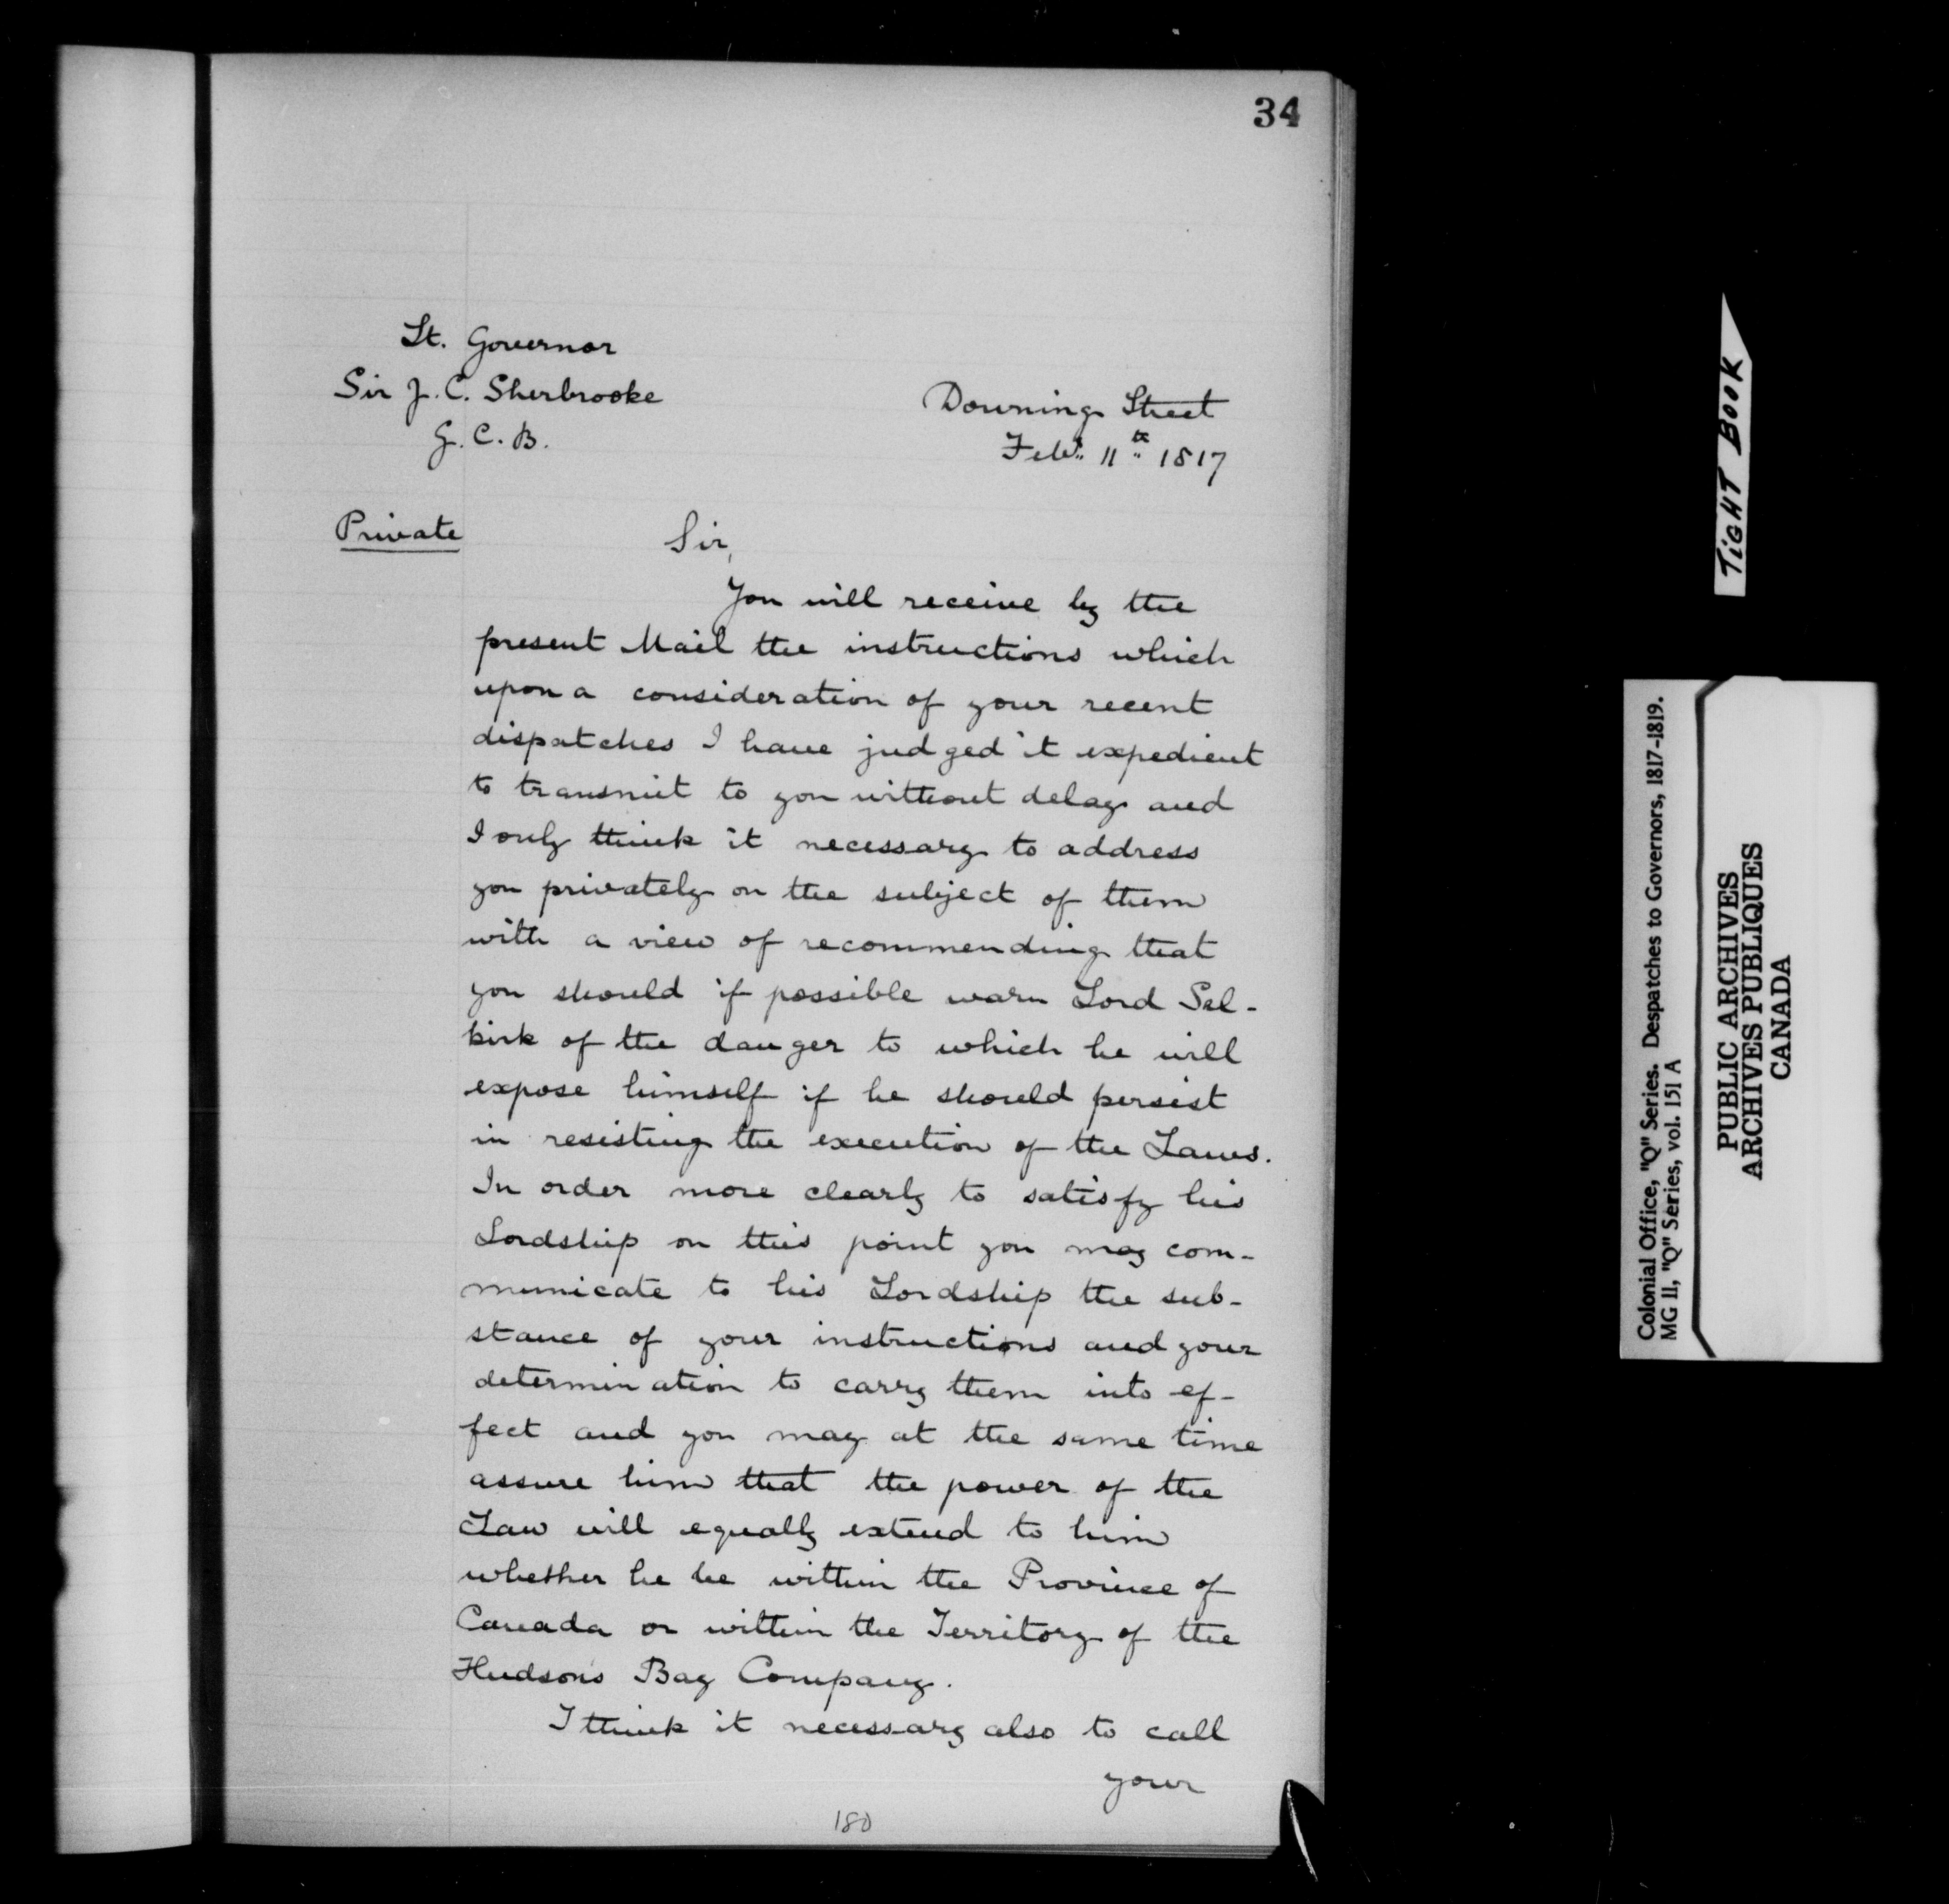 34
Lt. Governor
Sir J. C. Sherbrooke
G. C. B.
Downing Street
Feby. 11th 1817
Private
Sir,
You will receive by the
present Mail the instructions which
upon a consideration of your recent
dispatches I have judged it expedient
to transmit to you without delay and
I only think it necessary to address
you privately on the subject of them
with a view of recommending that
you should if possible warn Lord Sel-
kirk of the danger to which he will
expose himself if he should persist
in resisting the execution of the Laws.
In order more clearly to satisfy his
Lordship on this point you may com-
municate to his Lordship the sub-
stance of your instructions and your
determination to carry them into ef-
fect and you may at the same time
assure him that the power of the
Law will equally extend to him
whether he be within the Province of
Canada or within the Territory of the
Hudsons Bay Company.
I think it necessary also to call
your
180
TIGHT BOOK
Colonial Office, "Q" Series. Despatches to Governors, 1817-1819.
MG 11, "Q" Series, vol. 151 A
PUBLIC ARCHIVES
ARCHIVES PUBLIQUES
CANADA